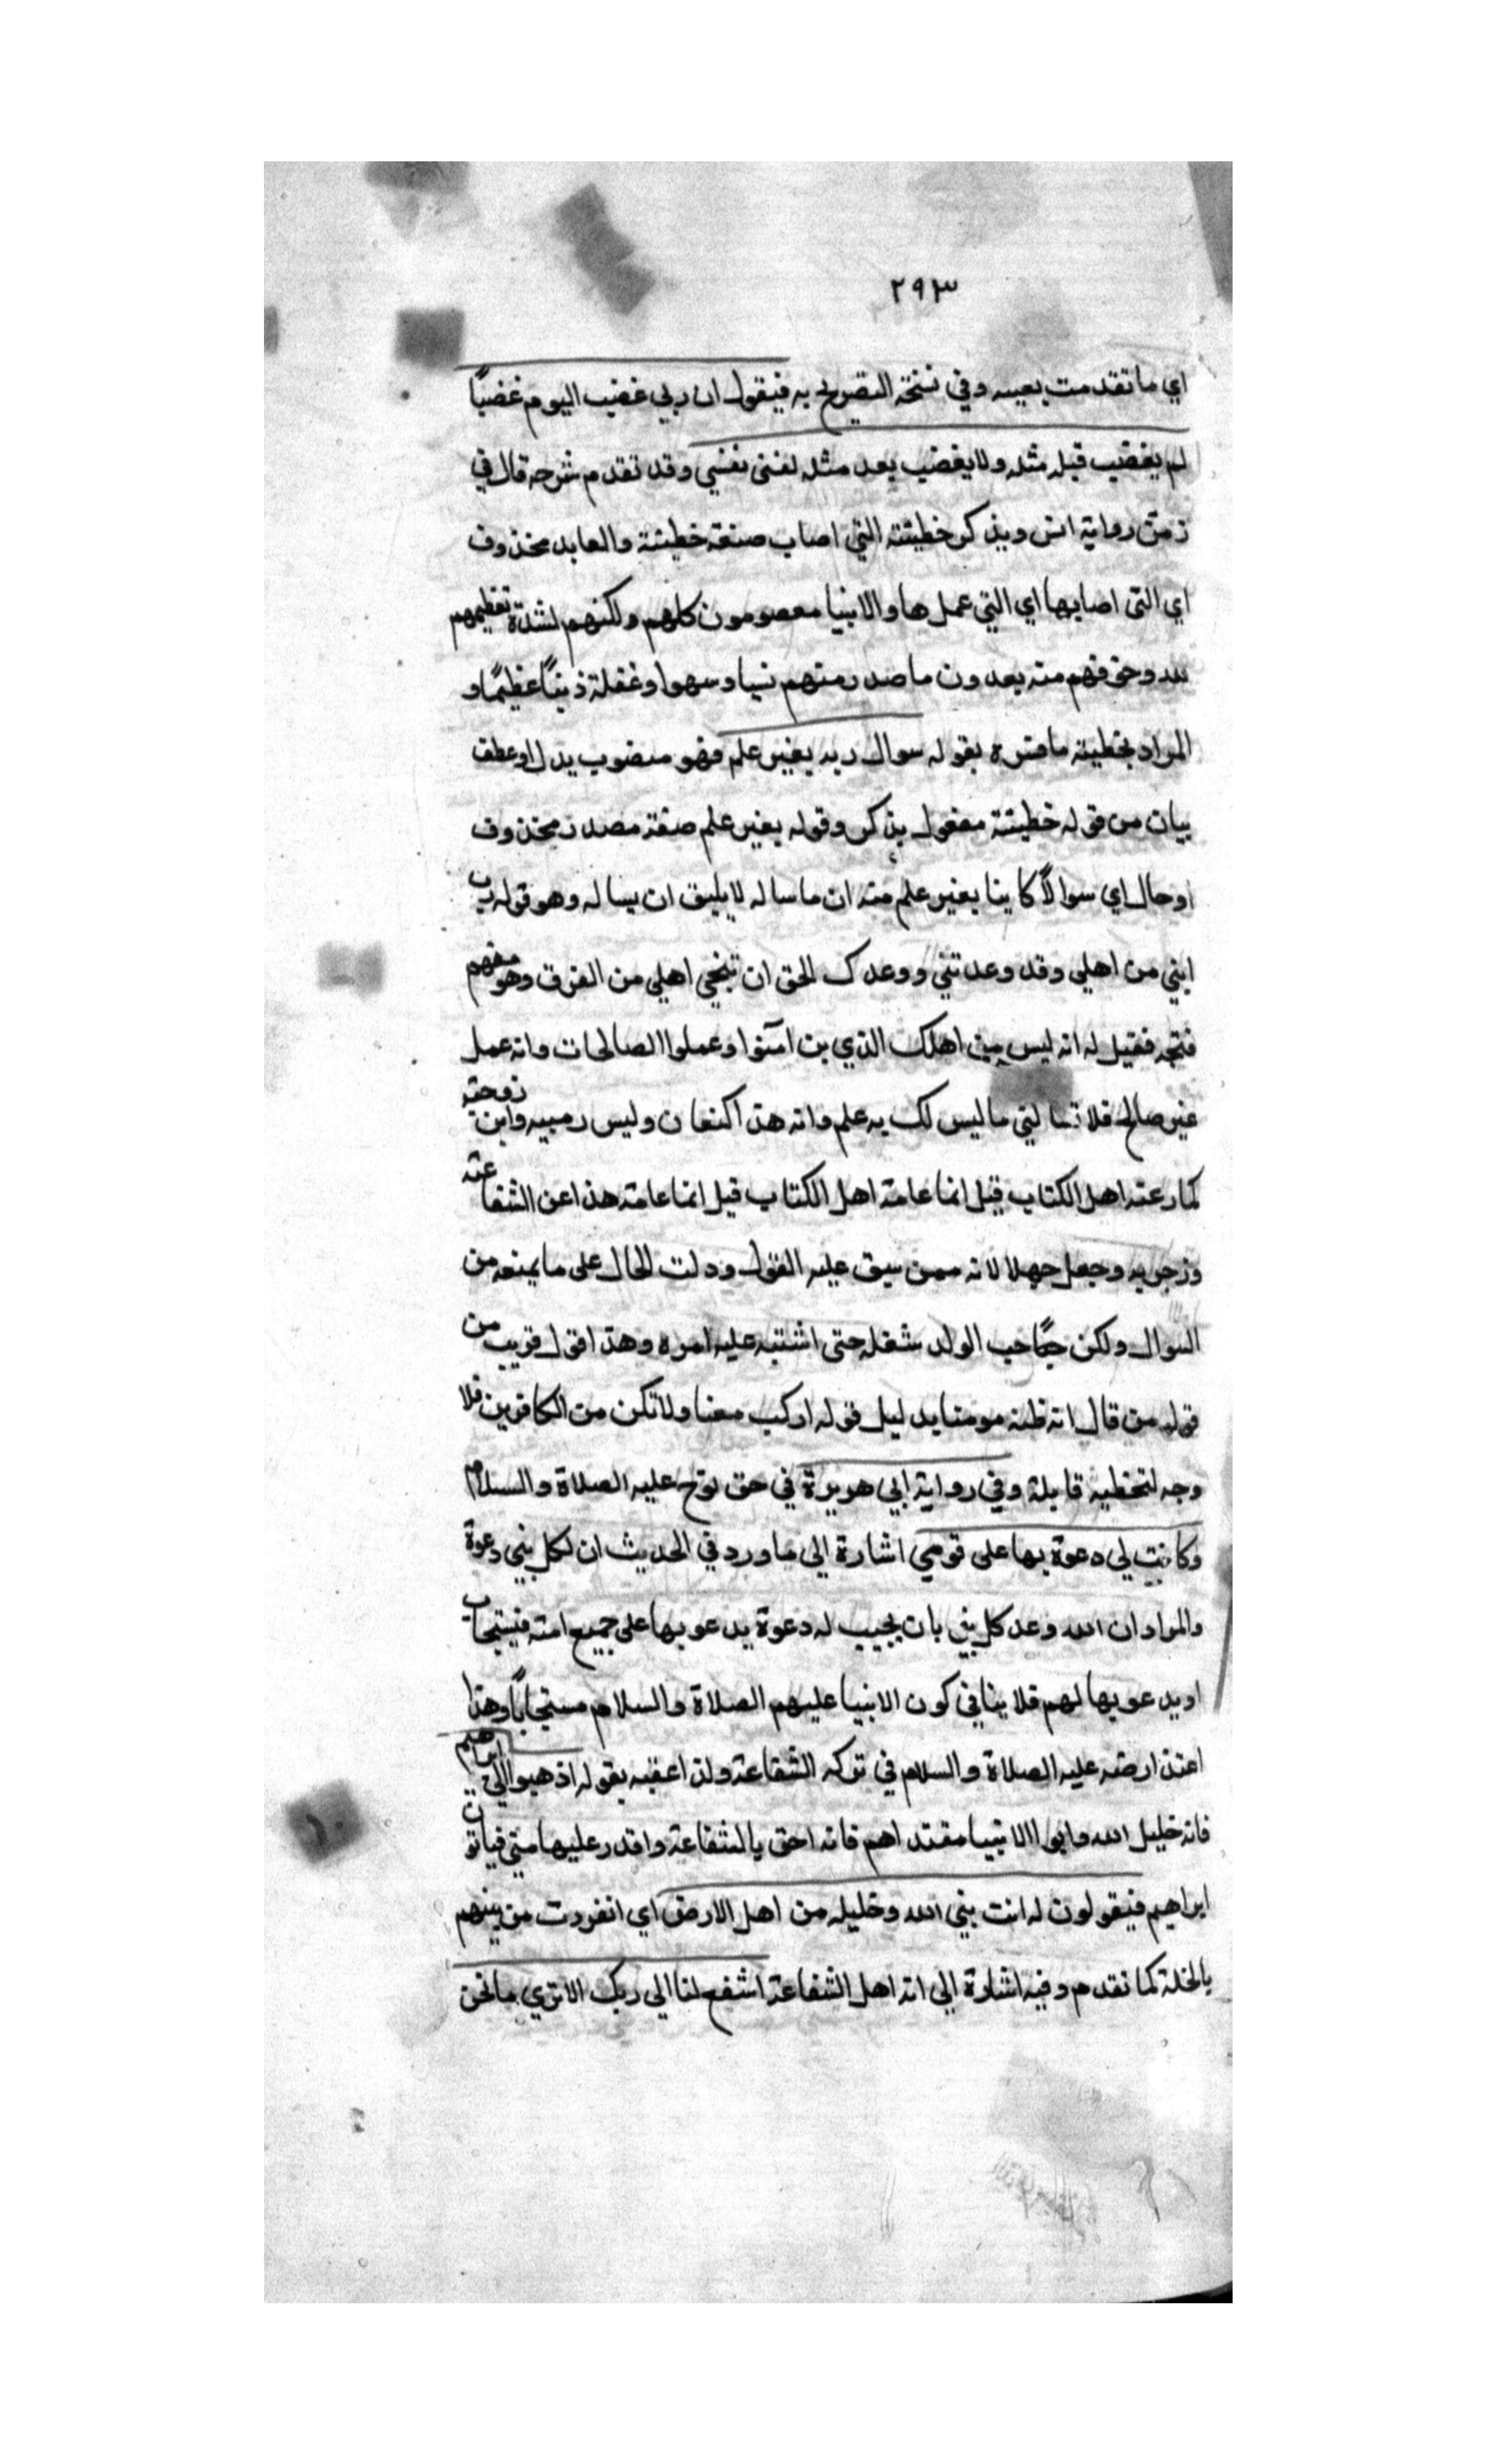 ٢٩٣
اي ما تقدمت بعينه وفي نسخة التصريح به فيقول ان ربي غضب اليوم غضبًا
لم يغضب قبله مثله ولا يغضب بعد مثله نفسي نفسي وقد تقدم شرحه قال في
رواية انس ويذكر خطيئته التي اصاب صفة خطيئة والعايد محذوف
اي التي اصابها اي التي عملها والانبيا معصومون كلهم ولكنهم لشدة تعظيمهم
لله وخوفهم منه يعدون ما صدر منهم نسيا وسهوا وغفلة ذنبًا عظيمًا و
المراد بخطيئته ما فسره بقوله سوال ربه بغير علم فهو منصوب بدل او عطف
بيان من قوله خطيئته مفعول يذكر وقوله بغير علم صفة مصدر محذوف
او حال اي سوالًا كاينا بغير علم منه ان ما ساله لا يليق ان يساله وهو قوله رب
ابني من اهلي وقد وعدتني ووعدك الحق ان تنجي اهلي من الغرق وهو منهم
فنجه فقيل له انه ليس من اهلك الذي بن آمنوا وعملوا الصالحات وانه عمل
غير صالح فلا تسالني ما ليس لك به علم وانه هذا كنعان وليس ربيبه وابن زوجته
كما زعمه اهل الكتاب قيل انما عامة اهل الكتاب قيل انما عامة هذا عن الشفاعته
وزجر به وجعل جهلا لانه ممن سبق عليه القول ودلت الحال على ما يمنعه من
السوال ولكن حب الولد شغله حتى اشتبه عليه امره وهذا قول قريب من
قوله من قال انه ظنه مومنا بدليل قوله اركب معنا ولا تكن من الكافرين فلا
وجه لتخطيه قايله وفي رواية ابي هريرة في حق نوح عليه الصلاة والسلام
وكانت لي دعوة بها على قومي اشارة الي ما ورد في الحديث ان لكل نبي دعوة
والمراد ان الله وعد كل نبي بان يجيب له دعوة يدعو بها على جميع امته فيستجاب
او يدعو بها لهم فلا ينافي كون الانبيا عليهم الصلاة والسلام مستجابًا وهذا
اعتذار منه عليه الصلاة والسلام في تركه الشفاعة ولذا عقبه بقوله اذهبوا الي ابراهيم
فانه خليل الله وابوا الانبيا مقتداهم فانه احق بالشفاعة واقدر عليها مني فياتون
ابراهيم فيقولون له انت نبي الله وخليله من اهل الارض اي انفردت من بينهم
بالخلة كما تقدم وفيه اشارة الي انه اهل الشفاعة اشفع لنا الي ربك الا تري ما نحن